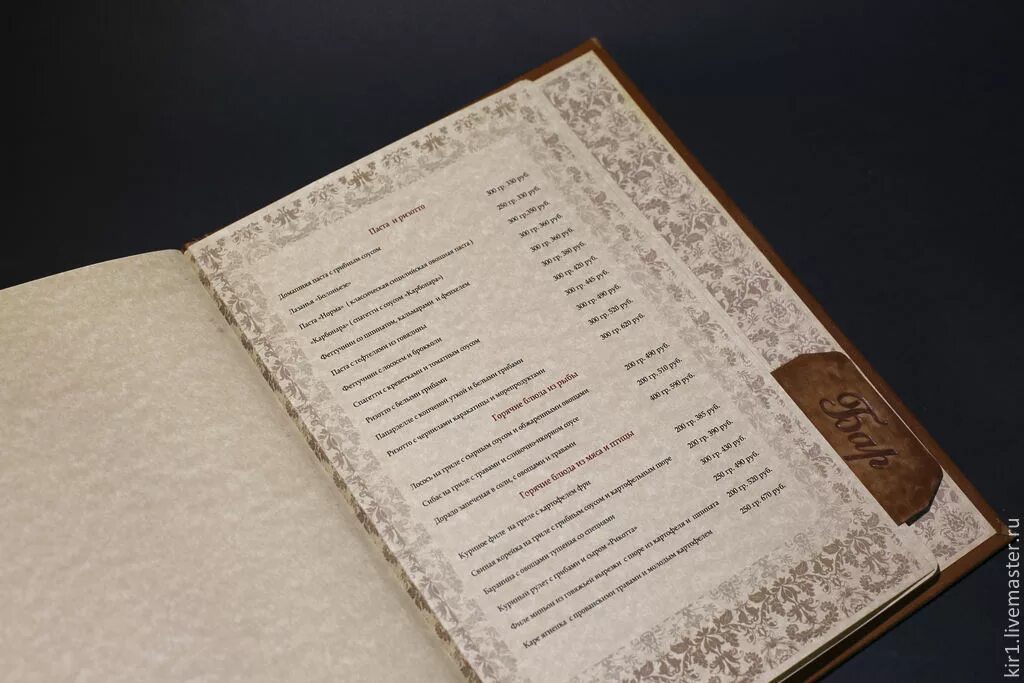 Паста и ризотто
Домашняя паста с грибным соусом 300 гр. 330 руб.
Лазанья «Болоньезе» 250 гр. 330 руб.
Паста «Норма» ( классическая сицилийская овощная паста ) 300 гр.350 руб.
«Карбонара» ( спагетти с соусом «Карбонара») 300 гр. 360 руб.
Феттучини со шпинатом, кальмарами и фенхелем 300 гр. 360 руб.
Паста с тефтелями из говядины 300 гр. 380 руб.
Феттучини с лососем и брокколи 300 гр. 420 руб.
Спагетти с креветками и томатным соусом 300 гр. 445 руб.
Ризотто с белыми грибами 300 гр. 490 руб.
Папарделле с копченой уткой и белыми грибами 300 гр. 520 руб.
Ризотто с чернилами каракатицы и морепродуктами 300 гр. 620 руб.
Горячие блюда из рыбы
Лосось на гриле с сырным соусом и обжаренными овощами 200 гр. 490 руб.
Сибас на гриле с травами и сливочно-икорном соусе 200 гр. 510 руб.
Дорадо запеченая в соли, с овощами и травами 400 гр. 590 руб.
Горячие блюда из мяса и птицы
Куриное филе на гриле с картофелем фри 200 гр. 385 руб.
Свиная корейка на гриле с грибным соусом и картофельным пюре 200 гр. 390 руб.
Баранина с овощами тушеная со специями 300 гр. 430 руб.
Куриный рулет с грибами и сыром «Рикотта» 250 гр. 490 руб.
Филе миньон из говяжьей вырезки с пюре из картофеля и шпината 200 гр. 520 руб.
Каре ягненка с прованскими травами и молодым картофелем 250 гр. 670 руб.
Бар
kir1.livemaster.ru